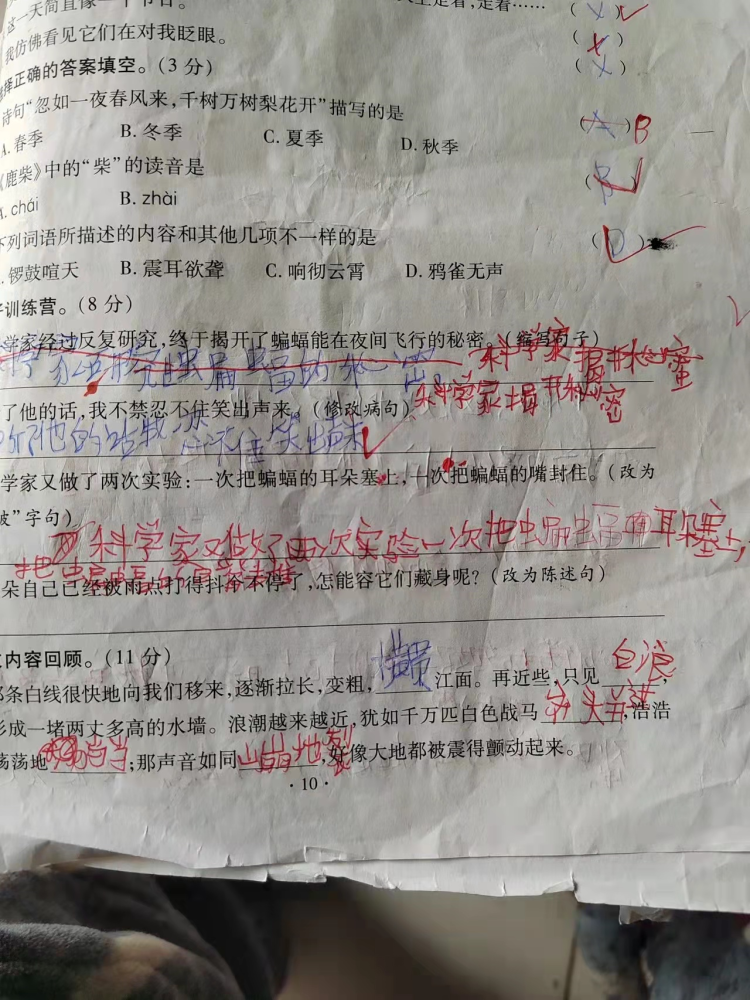 这一天简直像一个节日。 走着,走着…… ( )✓
我仿佛看见它们在对我眨眼。 (×)
择正确的答案填空。(3 分) (×)
诗句“忽如一夜春风来,千树万树梨花开”描写的是 (A) B
A. 春季 B. 冬季 C. 夏季 D. 秋季
《鹿柴》中的“柴”的读音是 (B)
A. chái B. zhài
下列词语所描述的内容和其他几项不一样的是 (D)
锣鼓喧天 B. 震耳欲聋 C. 响彻云霄 D. 鸦雀无声
子训练营。(8 分)
学家经过反复研究,终于揭开了蝙蝠能在夜间飞行的秘密。(缩写句子)
科学家揭开秘密
了他的话,我不禁忍不住笑出声来。(修改病句)
科学家揭开秘密
他的话我忍不住笑出声来
学家又做了两次实验:一次把蝙蝠的耳朵塞上,一次把蝙蝠的嘴封住。(改为
被”字句)
科学家又做了两次实验一次把蝙蝠的耳朵塞上,
朵自己已经被雨点打得抖个不停了,怎能容它们藏身呢?(改为陈述句)
内容回顾。(11 分)
那条白线很快地向我们移来,逐渐拉长,变粗,横贯江面。再近些,只见白浪,
形成一堵两丈多高的水墙。浪潮越来越近,犹如千万匹白色战马 ,浩浩
荡荡地 ;那声音如同山崩地裂,好像大地都被震得颤动起来。
· 10 ·